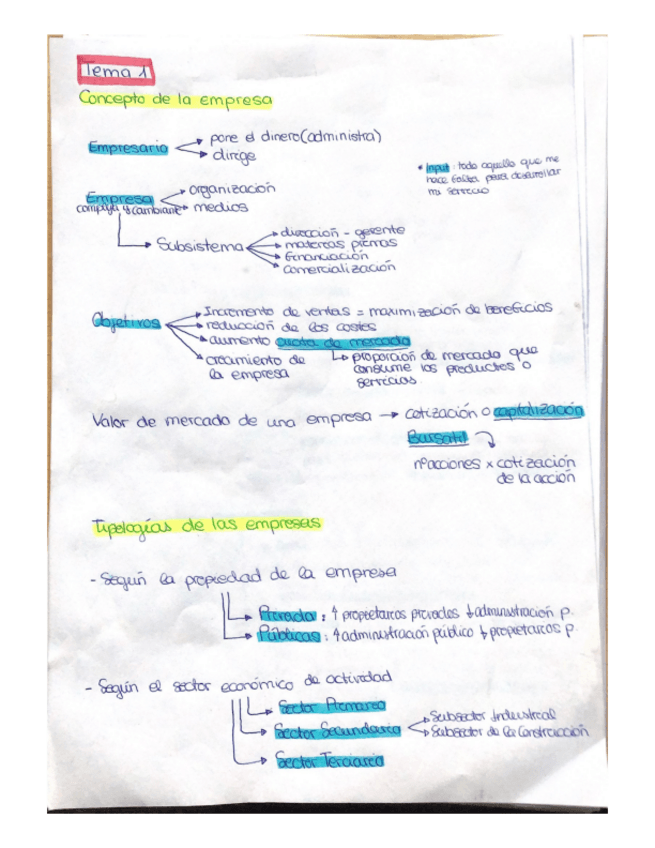 Tema 1
Concepto de la empresa
Empresario
pone el dinero (administra)
dirige
* Input: todo aquello que me
hace falta para desarrollar
mi servicio
Empresa
compleja y cambiante
organización
medios
Subsistema
dirección - gerente
materias primas
financiación
comercialización
Objetivos
Incremento de ventas = maximización de beneficios
reducción de los costes
aumento cuota de mercado
proporción de mercado que
consume los productos o
servicios.
crecimiento de
la empresa
Valor de mercado de una empresa → cotización o capitalización
Bursátil
nº acciones x cotización
de la acción
Tipologías de las empresas
- Según la propiedad de la empresa
Privada: ↑ propietarios privados ↓ administración p.
Públicas: ↑ administración público ↓ propietarios p.
- Según el sector económico de actividad
Sector Primario
Sector Secundario
Subsector Industrial
Subsector de la Construcción
Sector Terciario